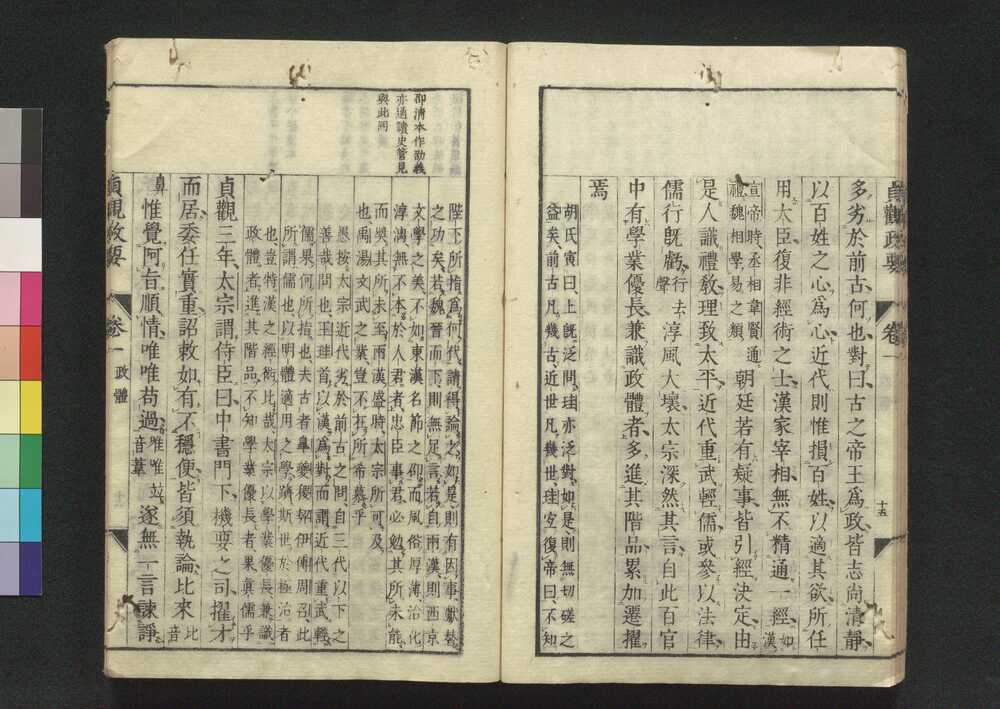 貞觀政要 卷一
十五
多劣於前古何也對曰古之帝王爲政皆志尚清靜
以百姓之心爲心近代則惟損百姓以適其欲所任
用大臣復非經術之士漢家宰相無不精通一經如漢
宣帝時丞相韋賢通
禮魏相學易之類
朝廷若有疑事皆引經決定由
是人識禮教理致太平近代重武輕儒或參以法律
儒行既虧行去聲淳風大壞太宗深然其言自此百官
中有學業優長兼識政體者多進其階品累加遷擢
焉
胡氏寅曰上既泛問珪亦泛對如是則無切磋之
益矣前古凡幾古近世凡幾世珪宜復帝曰不知
陛下所指爲何代請得論之如是則有因事獻替
之功矣若魏晉而下則無足言若自兩漢則西京
文學之美不如東漢名節之仰而風俗厚薄治化
淳漓無不本於人君者忠臣事君必勉其所未能
而奬其所未至兩漢盛時太宗所可及
也禹湯文武之業豈不在所希慕乎
愚按太宗近代劣於前古之問自三代以下之
善哉問也王珪首以漢爲對而謂近代重武輕
儒果何所指也夫古者皐夔稷契伊傅周召此
所謂儒也以明體適用之學躋斯世於極治者
也豈特漢之經術比哉太宗以學業優長兼識
政體者進其階品不知學業優長者果眞儒乎
貞觀三年太宗謂侍臣曰中書門下機要之司擢才
而居委任實重詔敕如有不穩便皆須執論比來比音
鼻惟覺阿旨順情唯唯苟過唯唯竝音葦遂無一言諫諍
卷一 政體
卽清本作勸義
亦通讀史管見
與此同